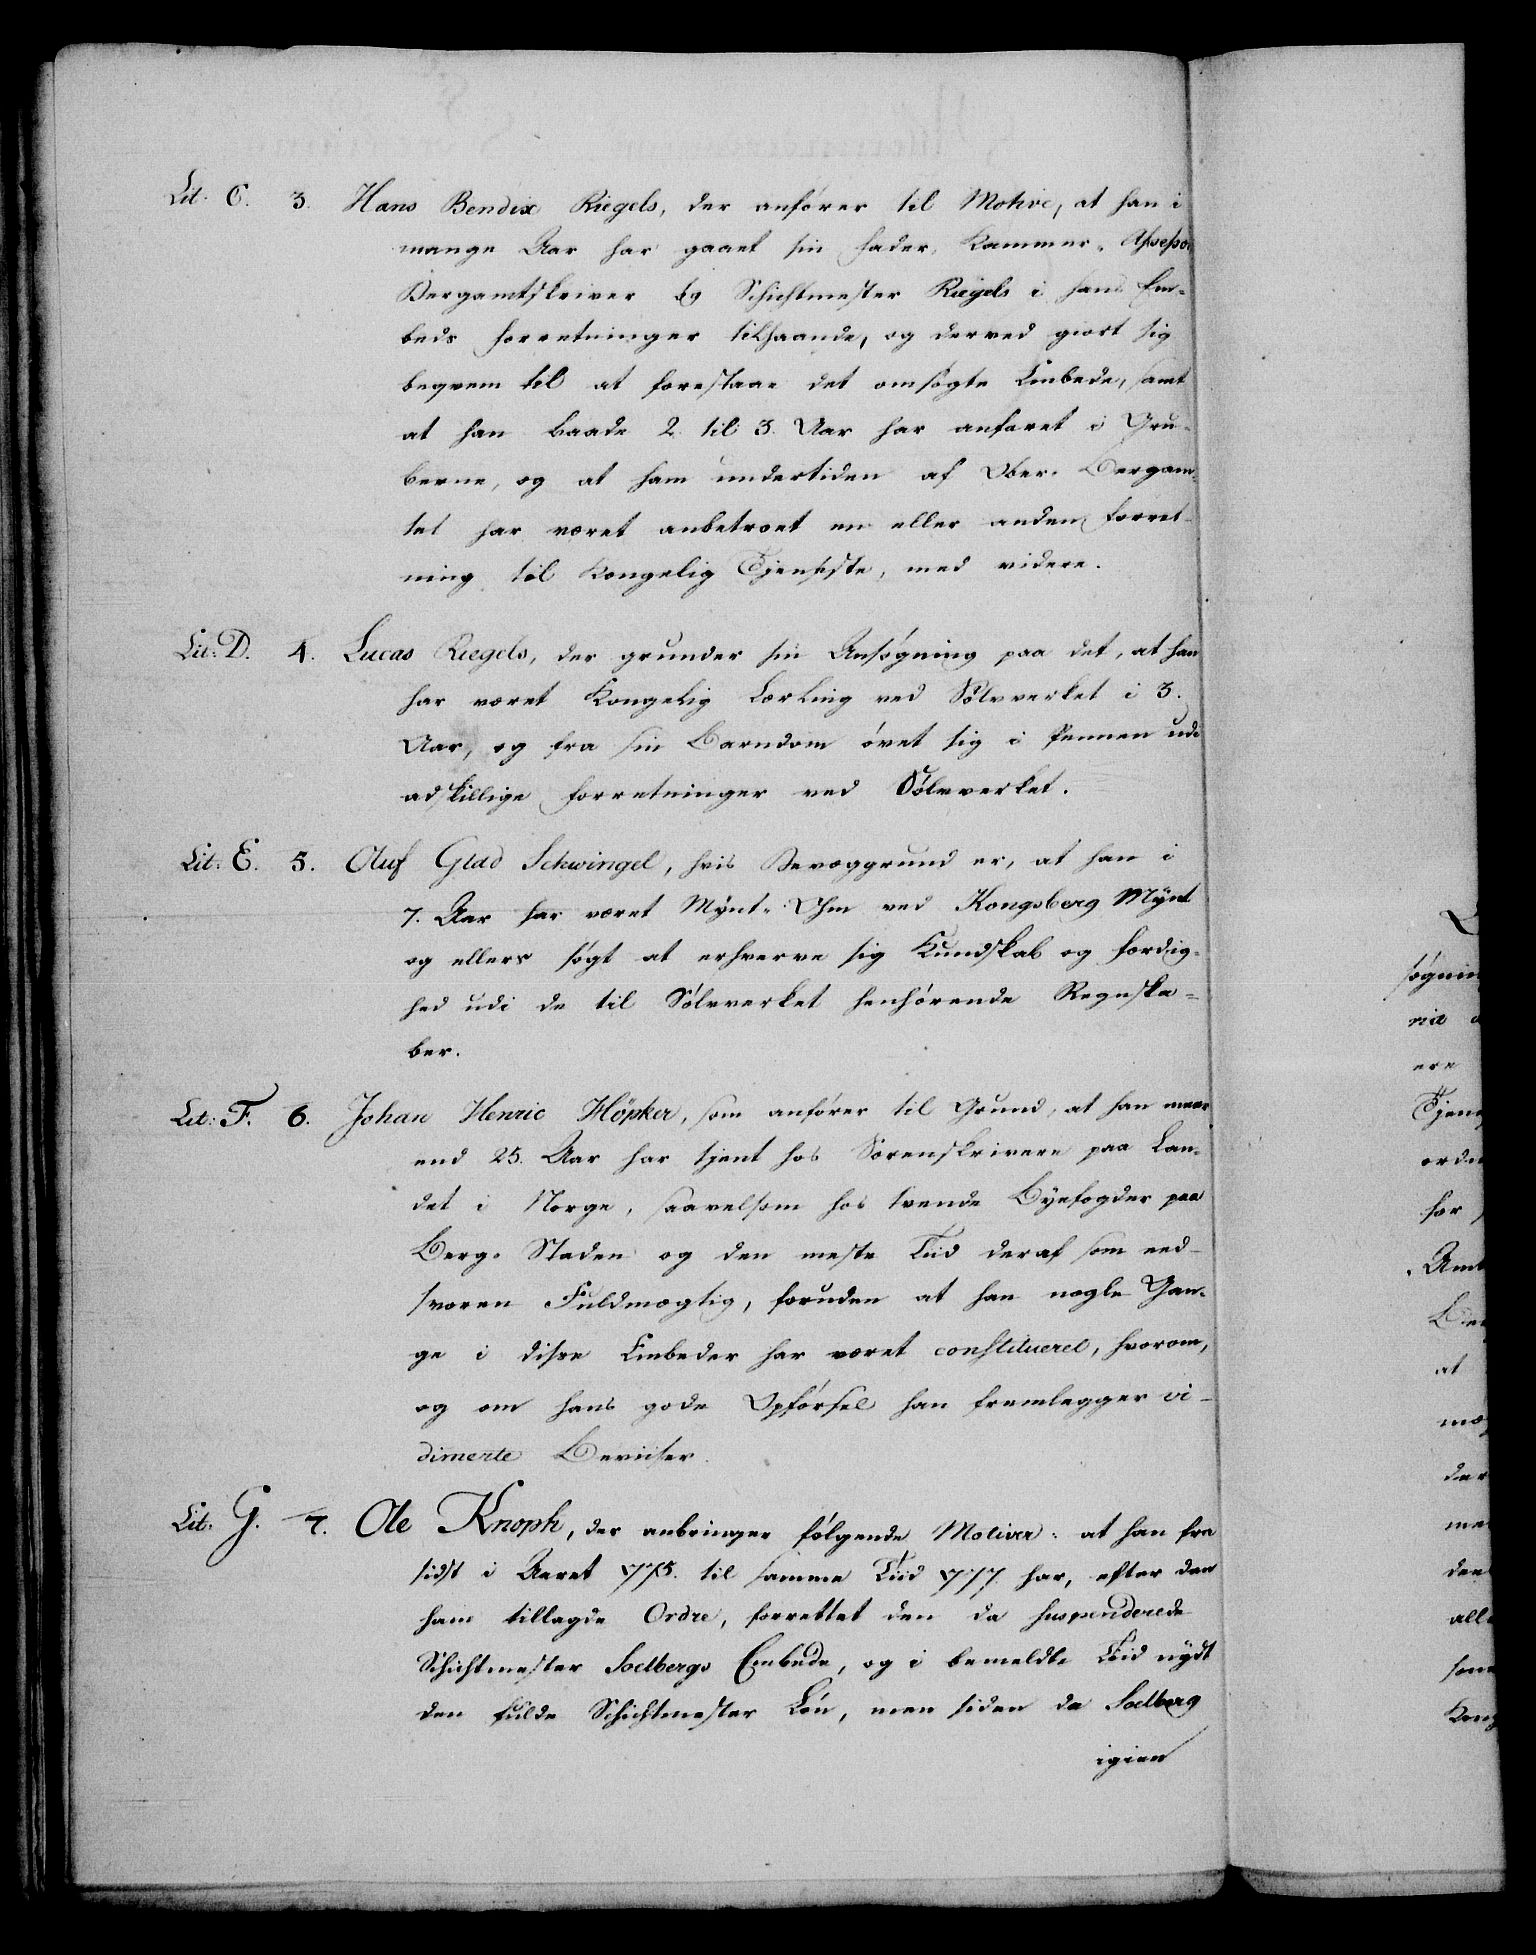 Lit. C. 3. Hans Bendix Riegels, der anfører til Motive, at han i
mange Aar har gaaet sin Fader, Kammer-Assessor
Bergamtskriver og Schichtmester Riegels i hans Em-
beds Forretninger tilhaande, og derved giort sig
beqvem til at forestaae det omsøgte Embede, samt
at han baade 2 til 3 Aar har anfaret i Gru-
berne, og at ham undertiden af Ober-Bergam-
tet har været anbetroet en eller anden Forret-
ning til Kongelig Tjeneste, med videre.
Lit: D. 4. Lucas Riegels, der grunder sin Ansøgning paa det, at han
har været Kongelig Lærling ved Sølvverket i 3.
Aar, og fra sin Barndom øvet sig i Pennen udi
adskillige Forretninger ved Sølvverket.
Lit: E. 5. Oluf Glad Schwingel, hvis Bevæggrund er, at han i
7. Aar har været Mÿnt-Ohm ved Kongsberg Mÿnt
og ellers søgt at erhverve sig Kundskab og Færdig-
hed udi de til Sølvverket henhørende Regnska-
ber.
Lit: F. 6. Johan Henric Höpker, som anfører til Grund, at han meer
end 25. Aar har tjent hos Sorenskrivere paa Lan-
det i Norge, saavelsom hos tvende Bÿefogder paa
Berg-Staden og den meste Tiid deraf som eed-
svoren Fuldmægtig, foruden at han nogle Gan-
ge i disse Embeder har været constitueret, hvorom,
og om hans gode Opførsel han fremlegger vi-
dimerte Beviiser.
Lit. G. 7. Ole Knoph, der anbringer følgende Motiver: at han fra
sidst i Aaret 775. til samme Tiid 777. har, efter den
ham tillagde Ordre, forrettet den da suspenderede
Schichtmester Soelbergs Embede, og i bemeldte Tiid nÿdt
den fulde Schichtmester Løn, men siden da Soelberg
igien